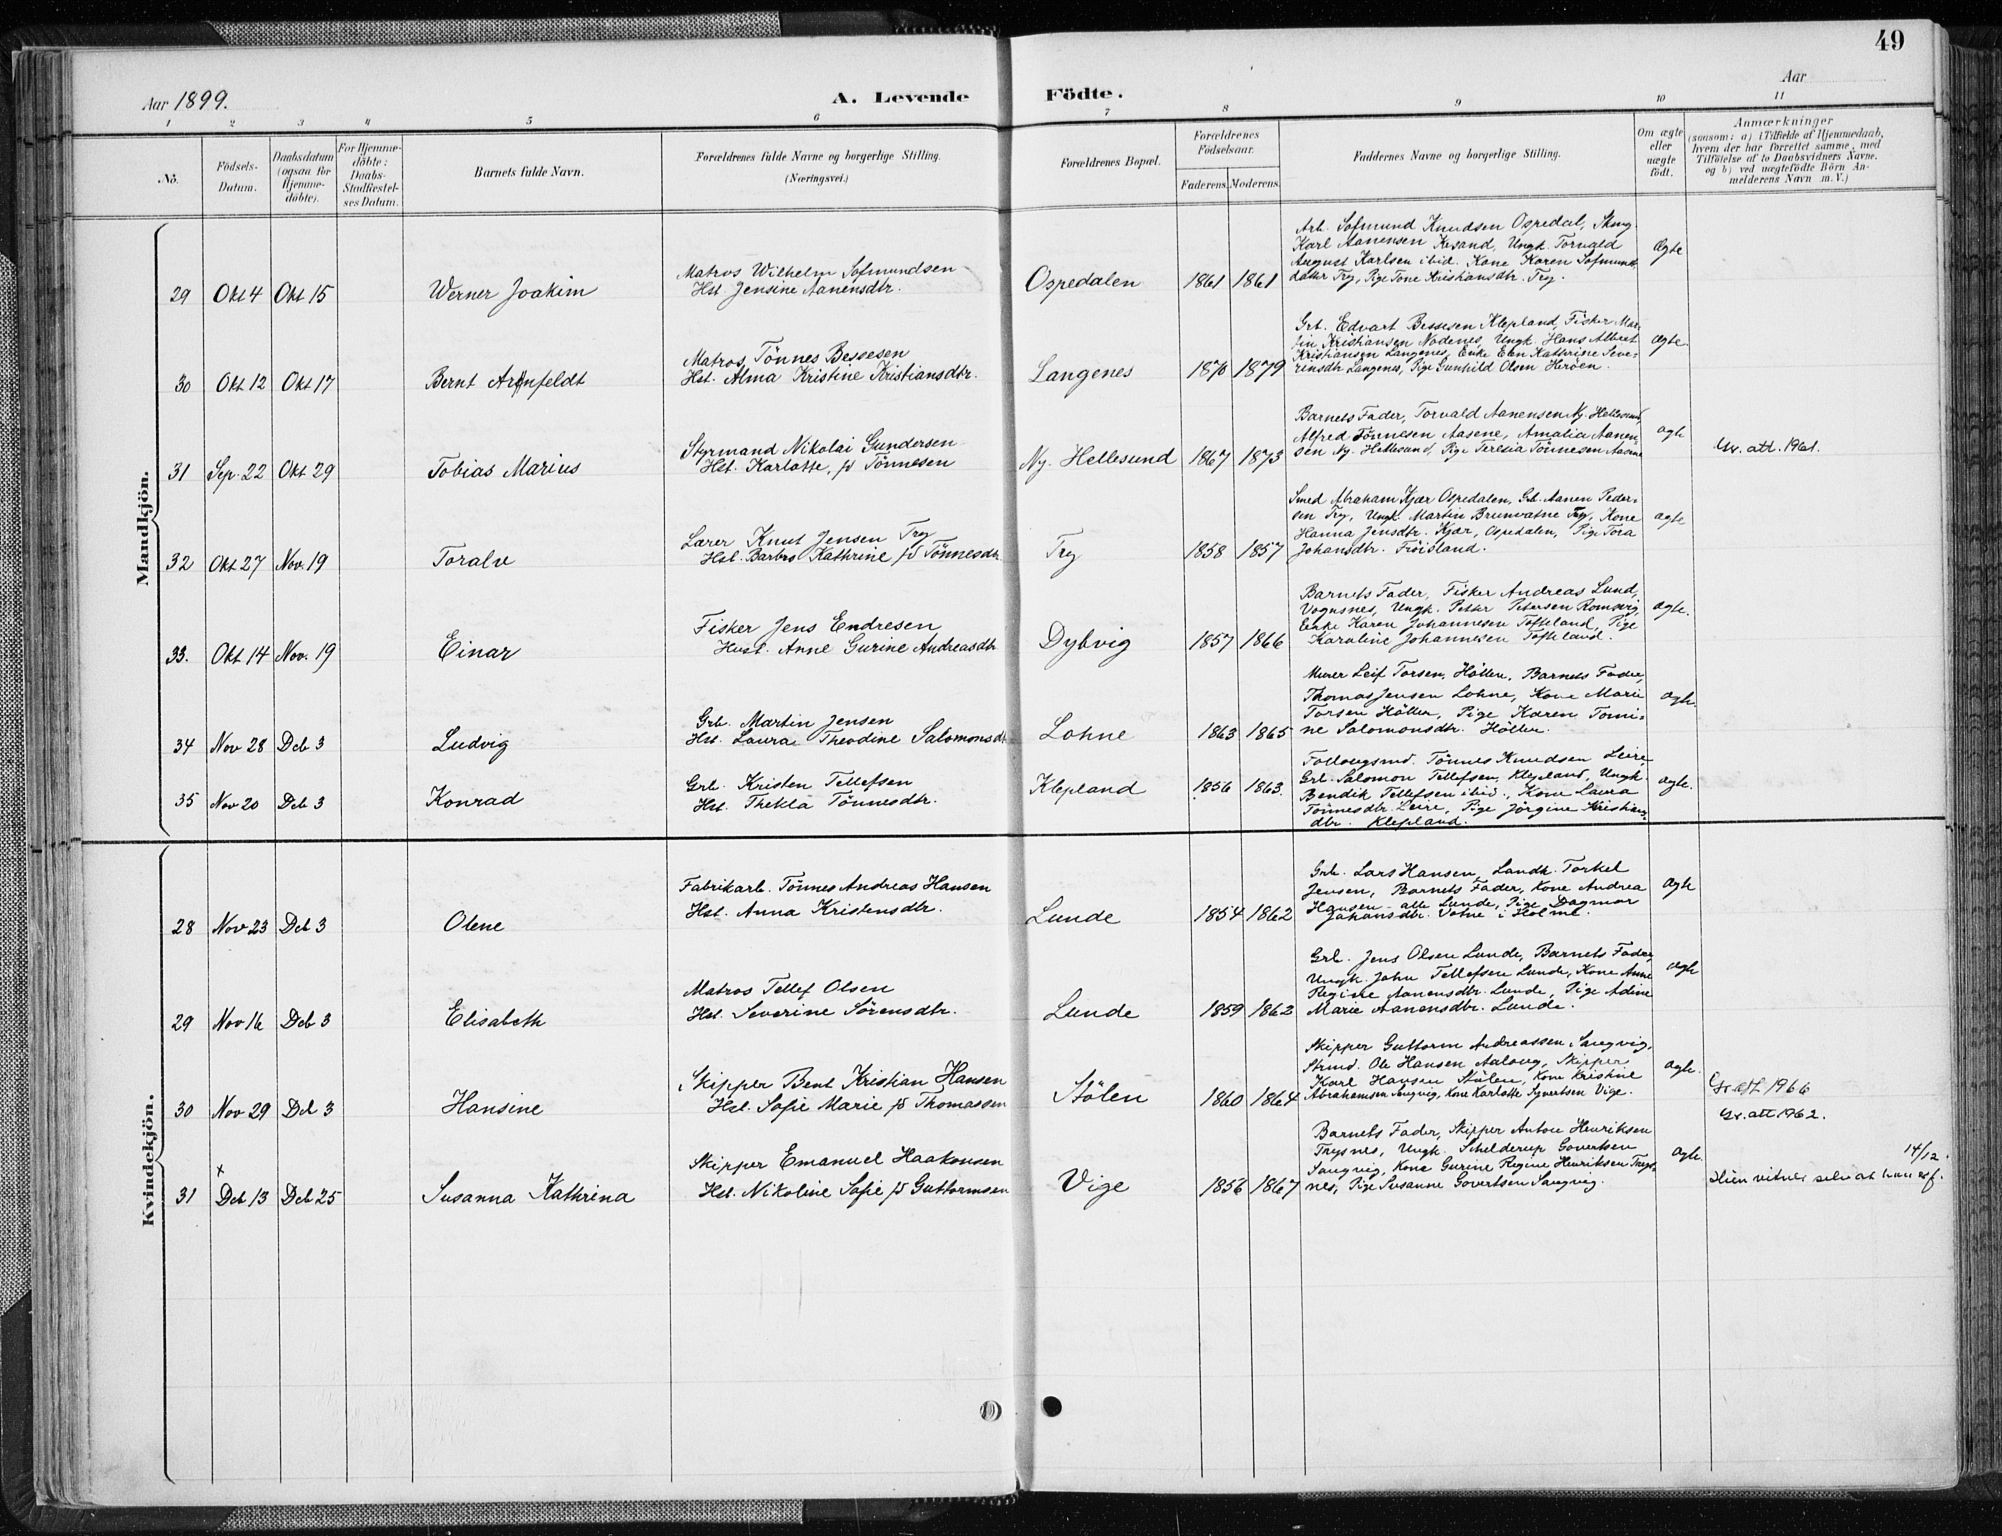 49
Aar 1899.
A. Levende Födte.
Aar
1 2 3 4 5 6 7 8 9 10 11
No.
Födsels-
Datum.
Daabsdatum
(ogsaa for
Hjemme-
döbte).
For Hjemme-
döbte:
Daabs-
Stadfæstel-
ses Datum.
Barnets fulde Navn.
Forældrenes fulde Navne og borgerlige Stilling.
(Næringsvei.)
Forældrenes Bopæl.
Forældrenes
Födselsaar.
Faderens. Moderens.
Faddernes Navne og borgerlige Stilling.
Om ægte
eller
uægte
födt.
Anmærkninger
(saasom: a) i Tilfælde af Hjemmedaab,
hvem der har forrettet samme, med
Tilföielse af to Daabsvidners Navne.
og b) ved uægtefödte Börn An-
melderens Navn m. V.)
Mandkjön.
29 Okt 4 Okt 15 Werner Joakim
Matros Wilhelm Sofmundsen
Hst. Jensine Aanensdtr.
Ospedalen 1861 1861
Arb. Sofmund Knudsen Ospedal,
Karl Aanensen Kesand, Ungk. Torvald
August Karlsen ibid. Kone Karen Sofmunds
datter Try, Pige Tone Kristiansdtr. Try.
Ægte
30 Okt 12 Okt 17 Bernt Arnfeldt
Matros Tönnes Bessesen
Hst. Alma Kristine Kristiansdtr.
Langenes 1870 1879
Grb. Edvart Bessesen Klepland, Fisker Mar-
tin Kristiansen Nodenes, Ungk. Hans Albert
Kristiansen Langenes, Enke Elen Kathrine Seve-
rinsdtr Langenes, Pige Gunhild Olsen Heröen.
Ægte
31 Sep. 22 Okt 29 Tobias Marius
Styrmand Nikolai Gundersen
Hst. Karlotte, fd Tönnesen
Ny. Hellesund 1867 1873
Barnets Fader, Torvald Aanensen Ny. Hellesund,
Alfred Tönnesen Aasene, Amalia Aanen-
sen Ny. Hellesund, Pige Teresia Tönnesen Aasene
ægte
Gr. att. 1961.
32 Okt 27 Nov. 19 Toralv
Lærer Knut Jensen Try
Hst. Barbro Kathrine fd Tönnesdtr
Try 1858 1857
Smed Abraham Kjær Ospedalen, Grb. Aanen Peder-
sen Try, Ungk. Martin Brunvatne Try, Kone
Hanna Jensdtr. Kjær, Ospedalen, Pige Tora
Johansdtr. Fröisland.
ægte
33. Okt 14 Nov. 19 Einar
Fisker Jens Endresen
Hust. Anne Gurine Andreasdtr
Dybvig 1857 1866
Barnets Fader, Fisker Andreas Lund,
Vognsnes, Ungk. Petter Petersen Romsvig
Enke Karen Johannesen Tofteland, Pige
Karoline Johannesen Tofteland.
Ægte.
34 Nov 28 Deb 3 Ludvig
Grb. Martin Jensen
Hst. Laura Theodine Salomonsdt
Lohne 1863 1865
Murer Leif Torsen, Höllen, Barnets Fader,
Thomas Jensen Lohne, Kone Marie
Torsen Höllen, Pige Karen Tomi-
ne Salomonsdtr. Höllen.
ægte
35 Nov 20 Deb 3 Konrad
Grb. Kristen Tellefsen
Hst. Thekla Tönnesdtr.
Klepland 1856 1863.
Tönnes Knudsen Leire
Grb. Salomon Tellefsen, Klepland, Ungk.
Bendik Tellefsen ibid., Kone Laura
Tönnesdtr. Leire, Pige Jörgine Kristians-
dtr. Klepland.
ægte.
Kvindekjön.
28 Nov 23 Deb 3 Olene
Fabrikarb. Tönnes Andreas Hansen
Hst. Anna Kristensdtr.
Lunde 1854 1862
Grb. Lars Hansen, Landh. Torkel
Jensen, Barnets Fader, Kone Andrea
Hansen - alle Lunde, Pige Dagmar
Johansdtr. Votne i Holme.
Ægte
29 Nov 16 Deb 3 Elisabeth
Matros Tellef Olsen
Hst. Severine Sörensdtr.
Lunde 1859 1862
Grb. Jens Olsen Lunde, Barnets Fader,
Ungk. John Tellefsen Lunde, Kone Anne
Regine Aanensdtr. Lunde, Pige Adine
Marie Aanensdtr. Lunde.
ægte
30 Nov 29 Deb 3 Hansine
Skipper Bent Kristian Hansen
Hst. Sofie Marie fd Thomassen
Stölen 1860 1864
Skipper Guttorm Andreassen Langvig,
Strmd. Ole Hansen Aaloug, Skipper
Karl Hansen Stölen, Kone Kristine
Abrahamsen Langvig, Kone Karlotte Syvertsen Vige.
ægte.
Gr. att. 1966
Gr. att 1962.
x
31 Deb 13 Deb 25 Susanna Kathrina
Skipper Emanuel Haakonsen
Hst. Nikoline Sofie fd Guttormsen
Vige 1856 1867
Barnets Fader, Skipper Anton Henriksen
Trysnes, Ungk. Schelderup Govertsen
Langvig, Kone Gurine Regine Henriksen Trys-
nes, Pige Susanne Govertsen Langvig.
Ægte
14/12.